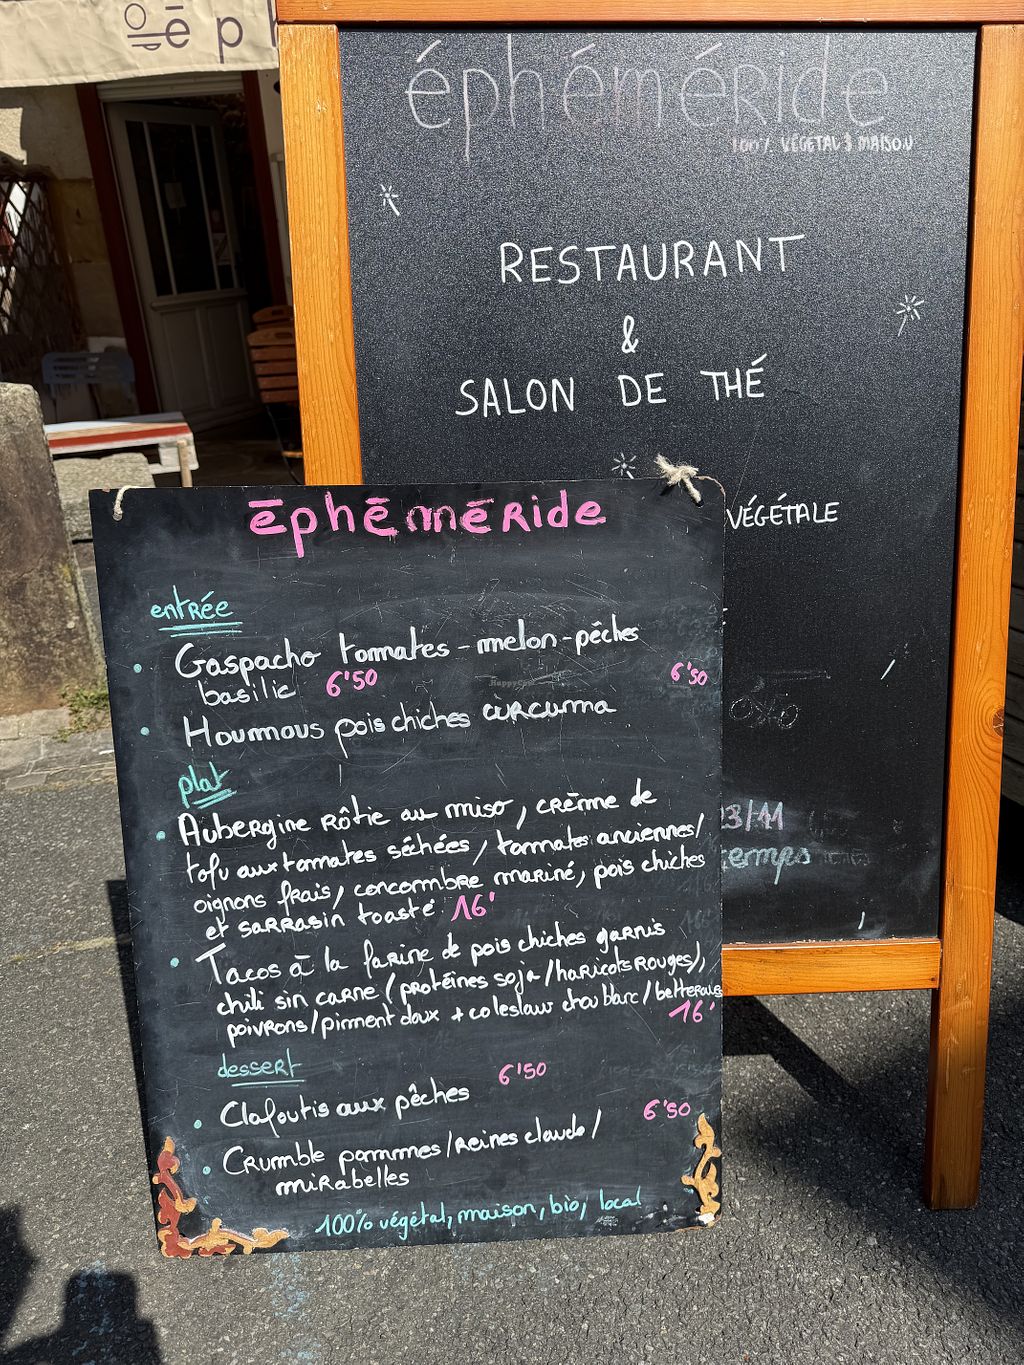 ēph
éphéméride
100% VÉGÉTAL & MAISON
RESTAURANT
&
SALON DE THÉ
VÉGÉTALE
ēphēmēride
entrée
Gaspacho tomates - melon - pêches
basilic 6'50
6'50
Houmous pois chiches curcuma
plat
Aubergine rôtie au miso, crème de
tofu aux tomates séchées / tomates anciennes /
oignons frais / concombre mariné, pois chiches
et sarrasin toasté 16'
Tacos à la farine de pois chiches garnis
chili sin carne (protéines soja / haricots rouges),
poivrons / piment doux + coleslaw chou blanc / betteraves
16'
dessert
6'50
Clafoutis aux pêches
6'50
Crumble pommes / reines claude /
mirabelles
100% végétal, maison, bio, local
3/11
temps
HappyCow